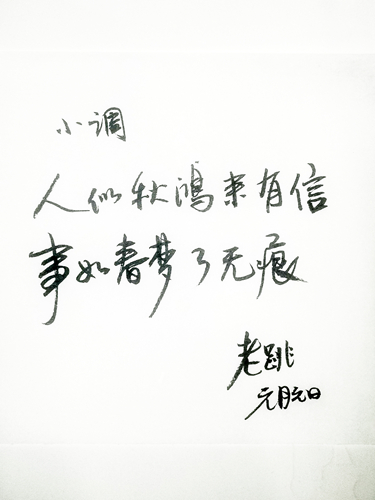 小调
人似秋鸿来有信
事如春梦了无痕
老跳
元月元日